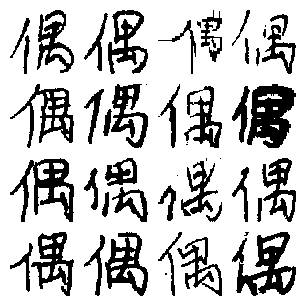 偶偶偶偶
偶偶偶偶
偶偶偶偶
偶偶偶偶